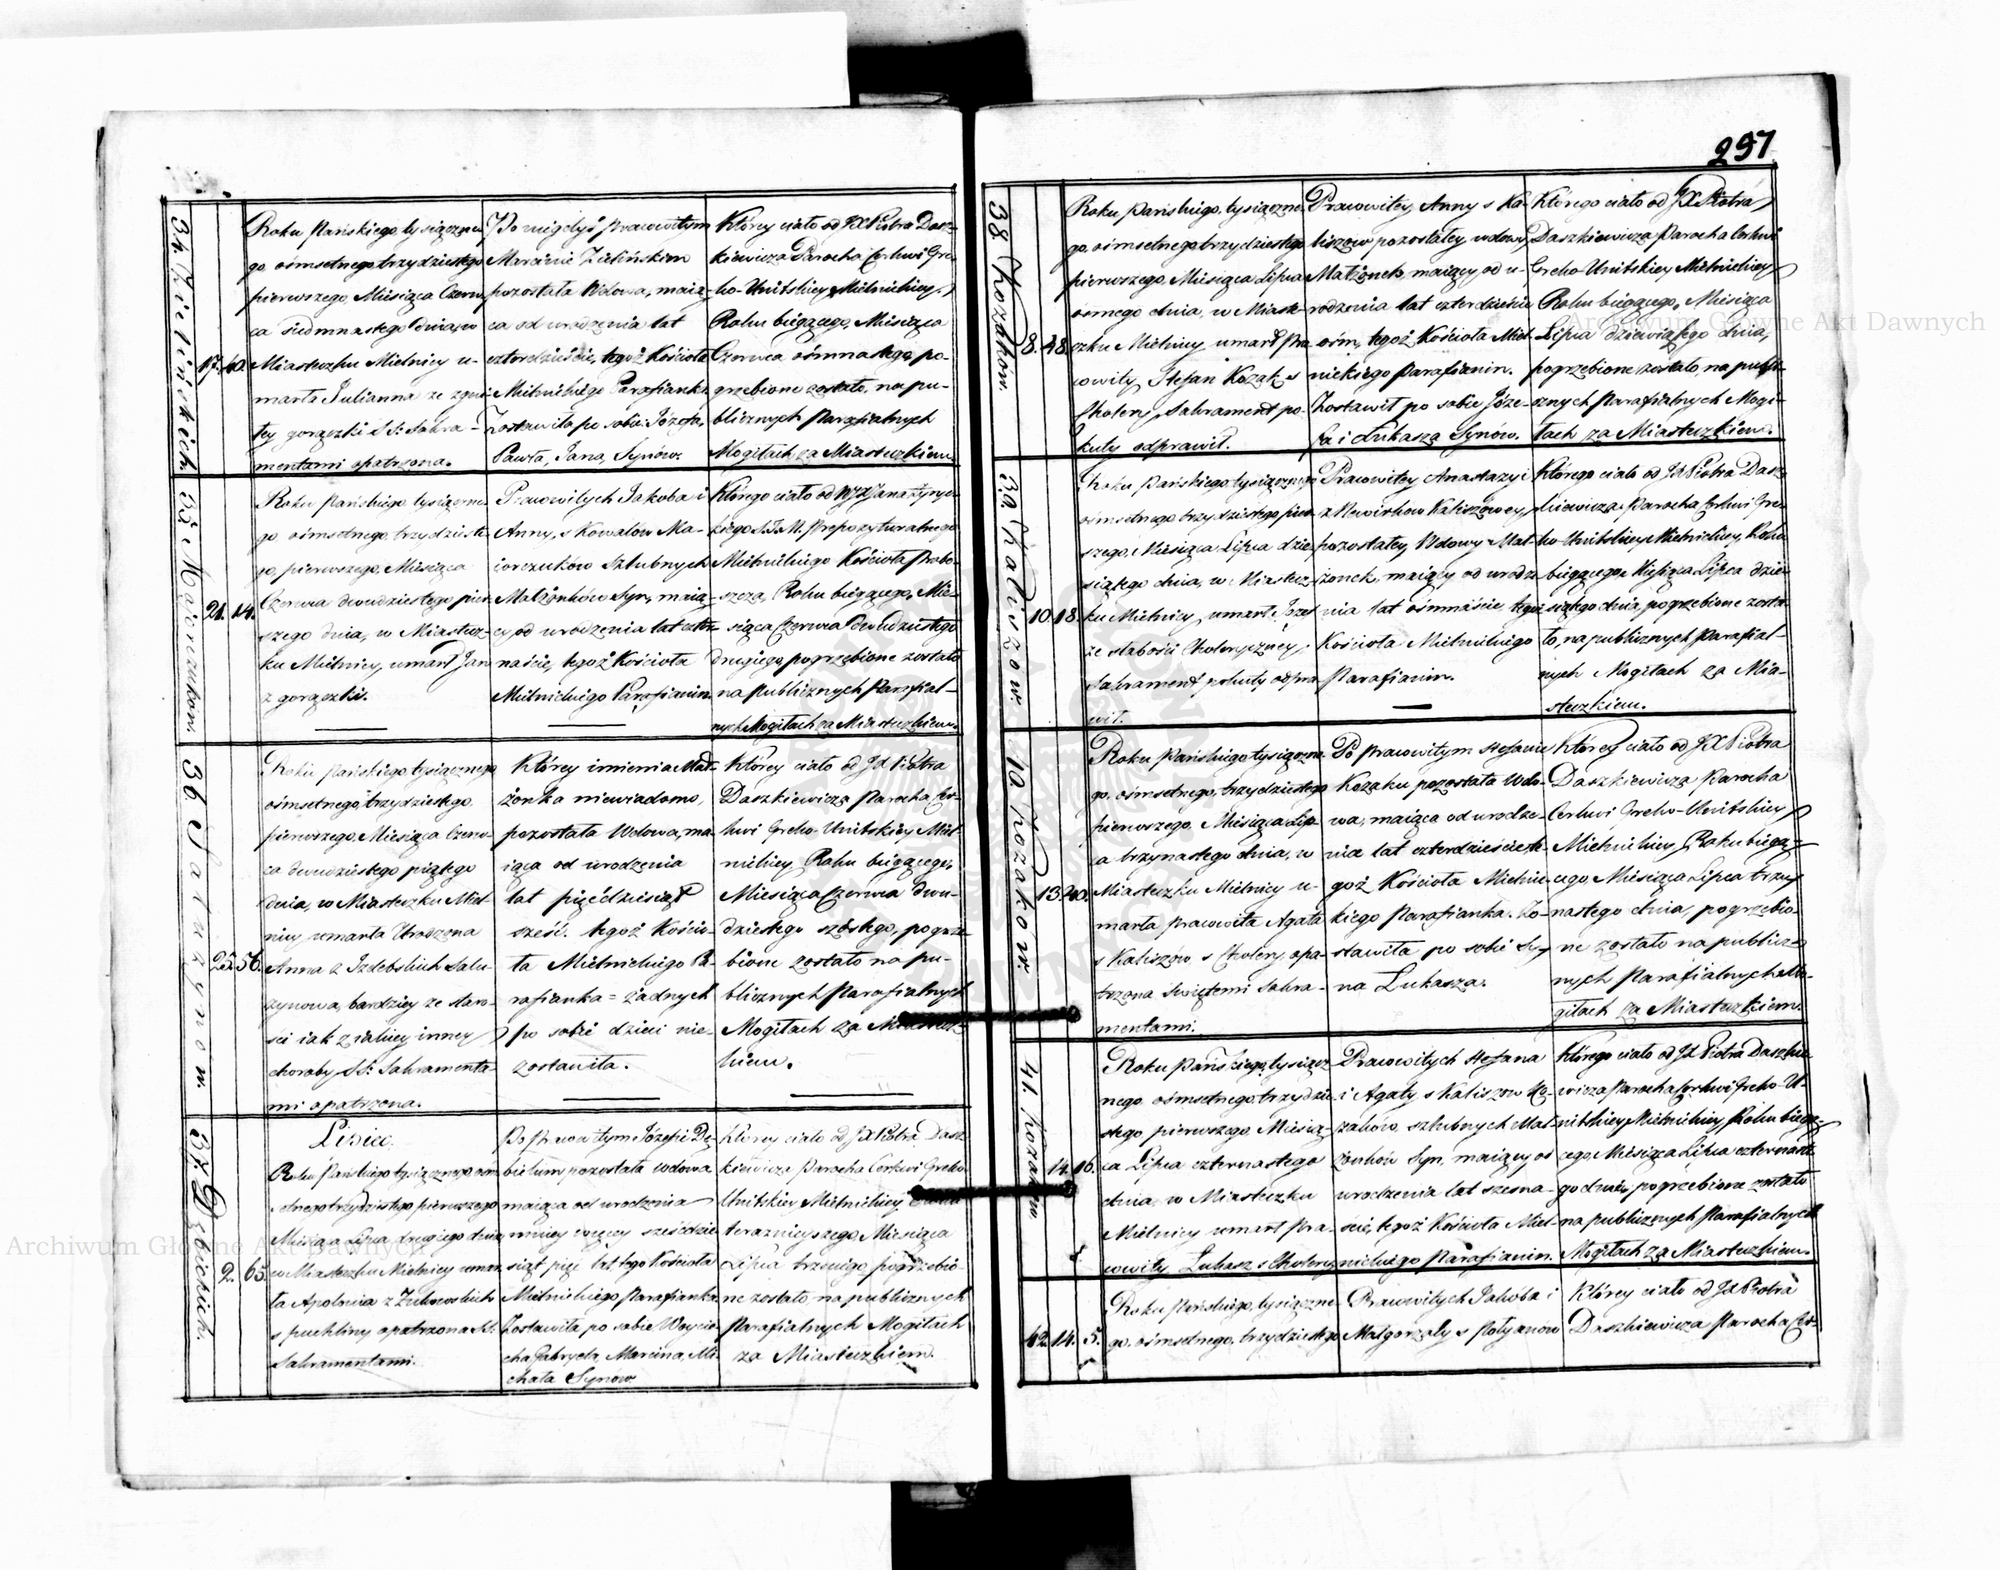 34 Zielińskich
17. 40.
Roku Pańskiego tysiączne
go, ośmsetnego trzydziestego
pierwszego, Miesiąca Czerw
ca siedmnastego dnia, w
Miasteczku Mielnicy u-
marła Julianna ze
tey gorączki SS: Sakra-
mentami opatrzona.
Po niegdyś Pracowitym
Marcinie Zielińskim
pozostała Wdowa, maią-
ca od urodzenia lat
czterdzieści, tegoż Kościoła
Mielnickiego Parafianka
Zostawiła po sobie Józefa,
Pawła, Jana, Synów.
Którey ciało od JX Piotra Dasz-
kiewicza Parocha Cerkwi Gre-
ko-Unitskiey Mielnickiey
Roku bieżącego, Miesiąca
Czerwca ośmnastego, po-
grzebione zostało, na pu-
blicznych Parafialnych
Mogiłach za Miasteczkiem
35 Maiorczukow
21. 14.
Roku Pańskiego tysiączne
go ośmsetnego trzydzieste
go, pierwszego, Miesiąca
Czerwca dwudziestego pier
szego dnia, w Miastecz-
ku Mielnicy, umarł Jan
z gorączki.
Pracowitych Jakoba i
Anny, s Kowalow Ma-
iorczuków Szlubnych
Małżonków Syn, maią-
cy od urodzenia lat czter
naście, tegoż Kościoła
Mielnickiego Parafianin.
Którego ciało od Jana
Prepozyturalnego
Mielnickiego Kościoła Probo-
szcza, Roku bieżącego, Mie-
siąca Czerwca dwudziestego
drugiego, pogrzebione zostało
na publicznych Parafial-
nych Mogiłach za Miasteczkiem.
36 Sałazynow.
25. 56.
Roku Pańskiego tysiącznego
ośmsetnego, trzydziestego
pierwszego, Miesiąca Czerw-
ca dwudziestego piątego
dnia, w Miasteczku Miel
nicy umarła Urodzona
Anna z Izdebskich Sała-
zynowa, bardziey ze staro-
ści iak z iakiey inney
choroby SS: Sakramenta-
mi opatrzona.
Którey imienia Mał-
żonka niewiadomo,
pozostała Wdowa, ma
iąca od urodzenia
lat pięćdziesiąt
sześć. tegoż Kościo-
ła Mielnickiego Pa-
rafianka = żadnych
po sobie dzieci nie-
zostawiła.
Którey ciało od JX Piotra
Daszkiewicza Parocha Cer-
kwi Greko-Unitskiey Miel-
nickiey, Roku bieżącego,
Miesiąca Czerwca dwu-
dziestego szóstego, pogrze-
bione zostało na pu-
blicznych Parafialnych
Mogiłach za Miastecz-
kiem.
37. Dębickich.
2. 65.
Lipiec.
Roku Pańskiego tysiącznego ośm
setnego trzydziestego pierwszego
Miesiąca Lipca drugiego dnia
w Miasteczku Mielnicy umar
ła Apolonia z Żukowskich
s puchliny opatrzona SS.
Sakramentami.
Po Pracowitym Józefie Dę-
bickim pozostała wdowa
maiąca od urodzenia
mniey więcey sześćdzie
siąt pięć lat tego Kościoła
Mielnickiego Parafianka
Zostawiła po sobie Woycie-
cha, Gabryela, Marcina, Mi-
chała Synow.
Którey ciało od JX Piotra Dasz
kiewicza Parocha Cerkwi Greko
Unitskiey Mielnickiey, Roku
teraznieyszego, Miesiąca
Lipca trzeciego, pogrzebio-
ne zostało, na publicznych
Parafialnych Mogiłach
za Miasteczkiem.
297
38 Kozaków
8. 48.
Roku Pańskiego, tysiączne-
go, ośmsetnego, trzydziestego
pierwszego, Miesiąca Lipca
osmego dnia, w Miaste-
czku Mielnicy, umarł Pra
cowity, Stefan Kozak s
Cholery, Sakrament po-
kuty odprawił.
Pracowitey, Anny s Ka-
liszow pozostałey wdowy
Małżonek, maiący od u-
rodzenia lat czterdzieści
ośm, tegoż Kościoła Miel-
nickiego Parafianin.
Zostawił po sobie Józe-
fa i Łukasza Synów.
Którego ciało od JX Piotra
Daszkiewicza, Parocha Cerkwi
Greko-Unitskiey Mielnickiey
Roku bieżącego, Miesiąca
Lipca dziewiątego dnia,
pogrzebione zostało, na publi-
cznych Parafialnych Mogi-
łach za Miasteczkiem.
39. Kaliszow.
10. 18.
Roku Pańskiego tysiącznego
ośmsetnego trzydziestego pier-
szego, Miesiąca Lipca dzie-
siątego dnia, w Miastecz-
ku Mielnicy, umarł Józef
ze słabości Choleryczney,
Sakrament pokuty odpra-
wił.
Pracowitey Anastazyi
z Kaliszowey,
pozostałey, Wdowy Mał-
żonek, maiący od urodze
nia lat ośmnaście tegoż
Kościoła Mielnickiego
Parafianin.
Którego ciało od JX Piotra Dasz
kiewicza Parocha Cerkwi Gre-
ko-Unitskiey Mielnickiey, Roku
bieżącego, Miesiąca Lipca dzie
siątego dnia, pogrzebione zosta
ło, na publicznych Parafial-
nych Mogiłach za Mia-
steczkiem.
40 Kozakow.
13. 40.
Roku Pańskiego tysiączne
go, ośmsetnego, trzydziestego
pierwszego, Miesiąca Lip-
ca trzynastego dnia, w
Miasteczku Mielnicy u-
marła Pracowita Agata
s Kaliszów, s Cholery, opa-
trzona Swiętemi Sakra-
mentami.
Po Pracowitym Stefanie
Kozaku pozostała Wdo-
wa, maiąca od urodze-
nia lat czterdzieście, te-
goż Kościoła Mielnic-
kiego Parafianka. Zo-
stawiła po sobie Sy-
na Łukasza.
Którey ciało od JX Piotra
Daszkiewicza Parocha
Cerkwi Greko-Unitskiey
Mielnickiey, Roku bieżą-
cego, Miesiąca Lipca trzy-
nastego dnia, pogrzebio-
ne zostało na publicz-
nych Parafialnych Mo-
giłach za Miasteczkiem.
41. Kozakow
14. 16.
Roku Pańskiego, tysiącz-
nego ośmsetnego, trzydzie
stego pierwszego Miesią-
ca Lipca czternastego
dnia, w Miasteczku
Mielnicy umarł Pra-
cowity Łukasz s Cholery
Pracowitych Stefana
i Agaty s Kaliszow Ko-
zakow, szlubnych Mał-
żonków Syn, maiący od
urodzenia lat szesna-
ście, tegoż Kościoła Miel-
nickiego Parafianin.
Którego ciało od JX Piotra Daszkie
wicza, Parocha Cerkwi Greko-U-
nitskiey Mielnickiey, Roku bieżą-
cego, Miesiąca Lipca czternaste
go dnia, pogrzebione zostało
na publicznych Parafialnych
Mogiłach za Miasteczkiem.
42. 14. 5.
Roku Pańskiego, tysiączne-
go, ośmsetnego, trzydziestego
Pracowitych Jakóba i
Małgorzaty s Połyanow
Którey ciało od JX Piotra
Daszkiewicza Parocha Cer-
Archiwum Główne Akt Dawnych
Archiwum Główne Akt Dawnych